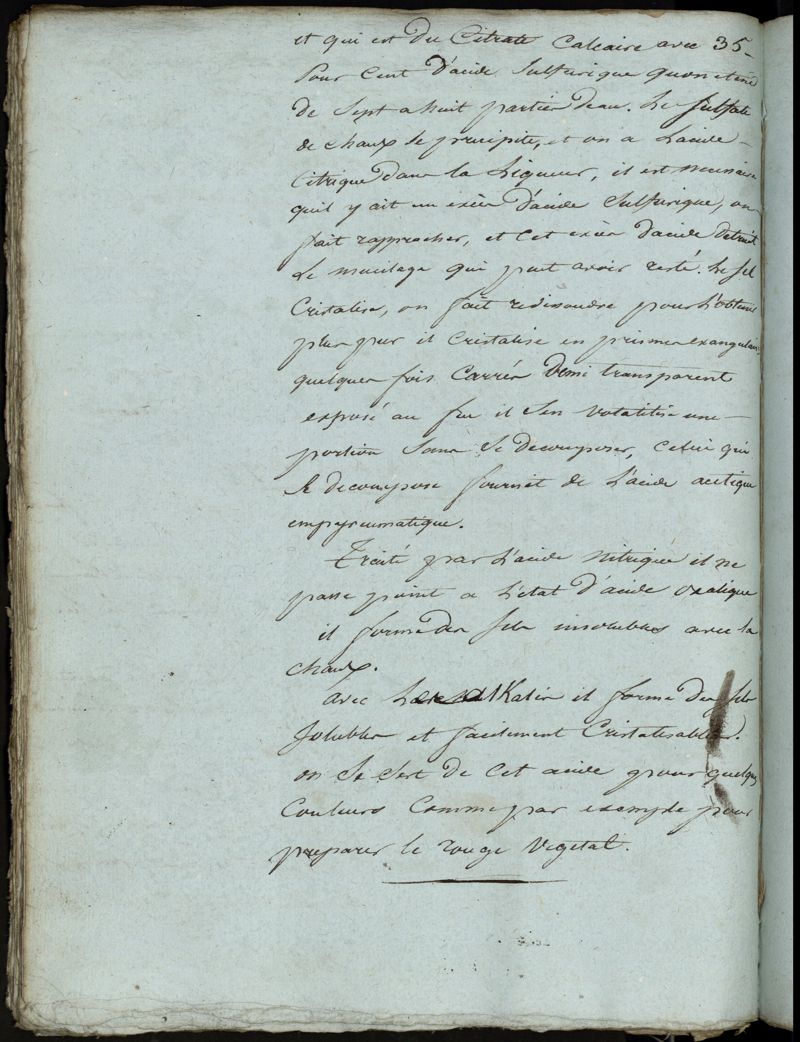 et qui est du Citrate Calcaire avec 35-
pour Cent d'acide Sulfurique quon etend
de Sept a huit parties deau. Le Sulfate
de chaux se precipite, et on a Lacide-
Citrique dans la Liqueur, il est necessaire
quil y ait un excès d'acide Sulfurique, on
fait rapprocher, et Cet excès dacide Detruit
Le mucilage qui peut avoir resté. Le Sel
Cristalise, on fait redissoudre pour L'obtenir
plus pur il Cristalise en prismes exangulair
quelques fois Carrés Demi transparent
exposé au feu il Sen Volatilise une-
portion Sans Se decomposer, Celui qui
Se decompose fournit de L'acide acetique
empyreumatique.
Traité par L'acide Nitrique il ne
passe point a L'etat d'acide oxalique
il forme des Sels insolubles avec la
chaux.
avec Les alKalis il forme des Sels
Solubles et facilement Cristalisables.
on Se Sert de Cet acide pour quelques
Couleurs Comme par exemple pour
preparer le rouge Vegetal.